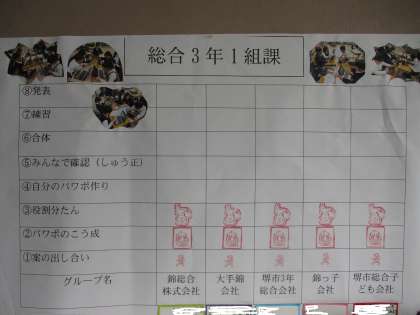 総合3年1組課
⑧発表
⑦練習
⑥合体
⑤みんなで確認（しゅう正）
④自分のパワポ作り
③役割分たん
②パワポのこう成
①案の出し合い
グループ名
錦総合
株式会社
大手錦
会社
堺市3年
総合会社
錦っ子
会社
堺市総合子
ども会社